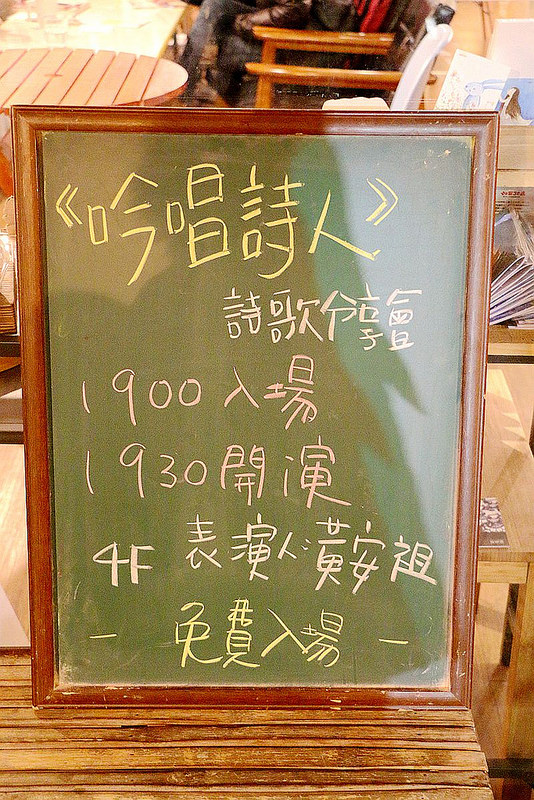 《吟唱詩人》
詩歌分享會
1900入場
1930開演
4F 表演人:黃安祖
- 免費入場 -